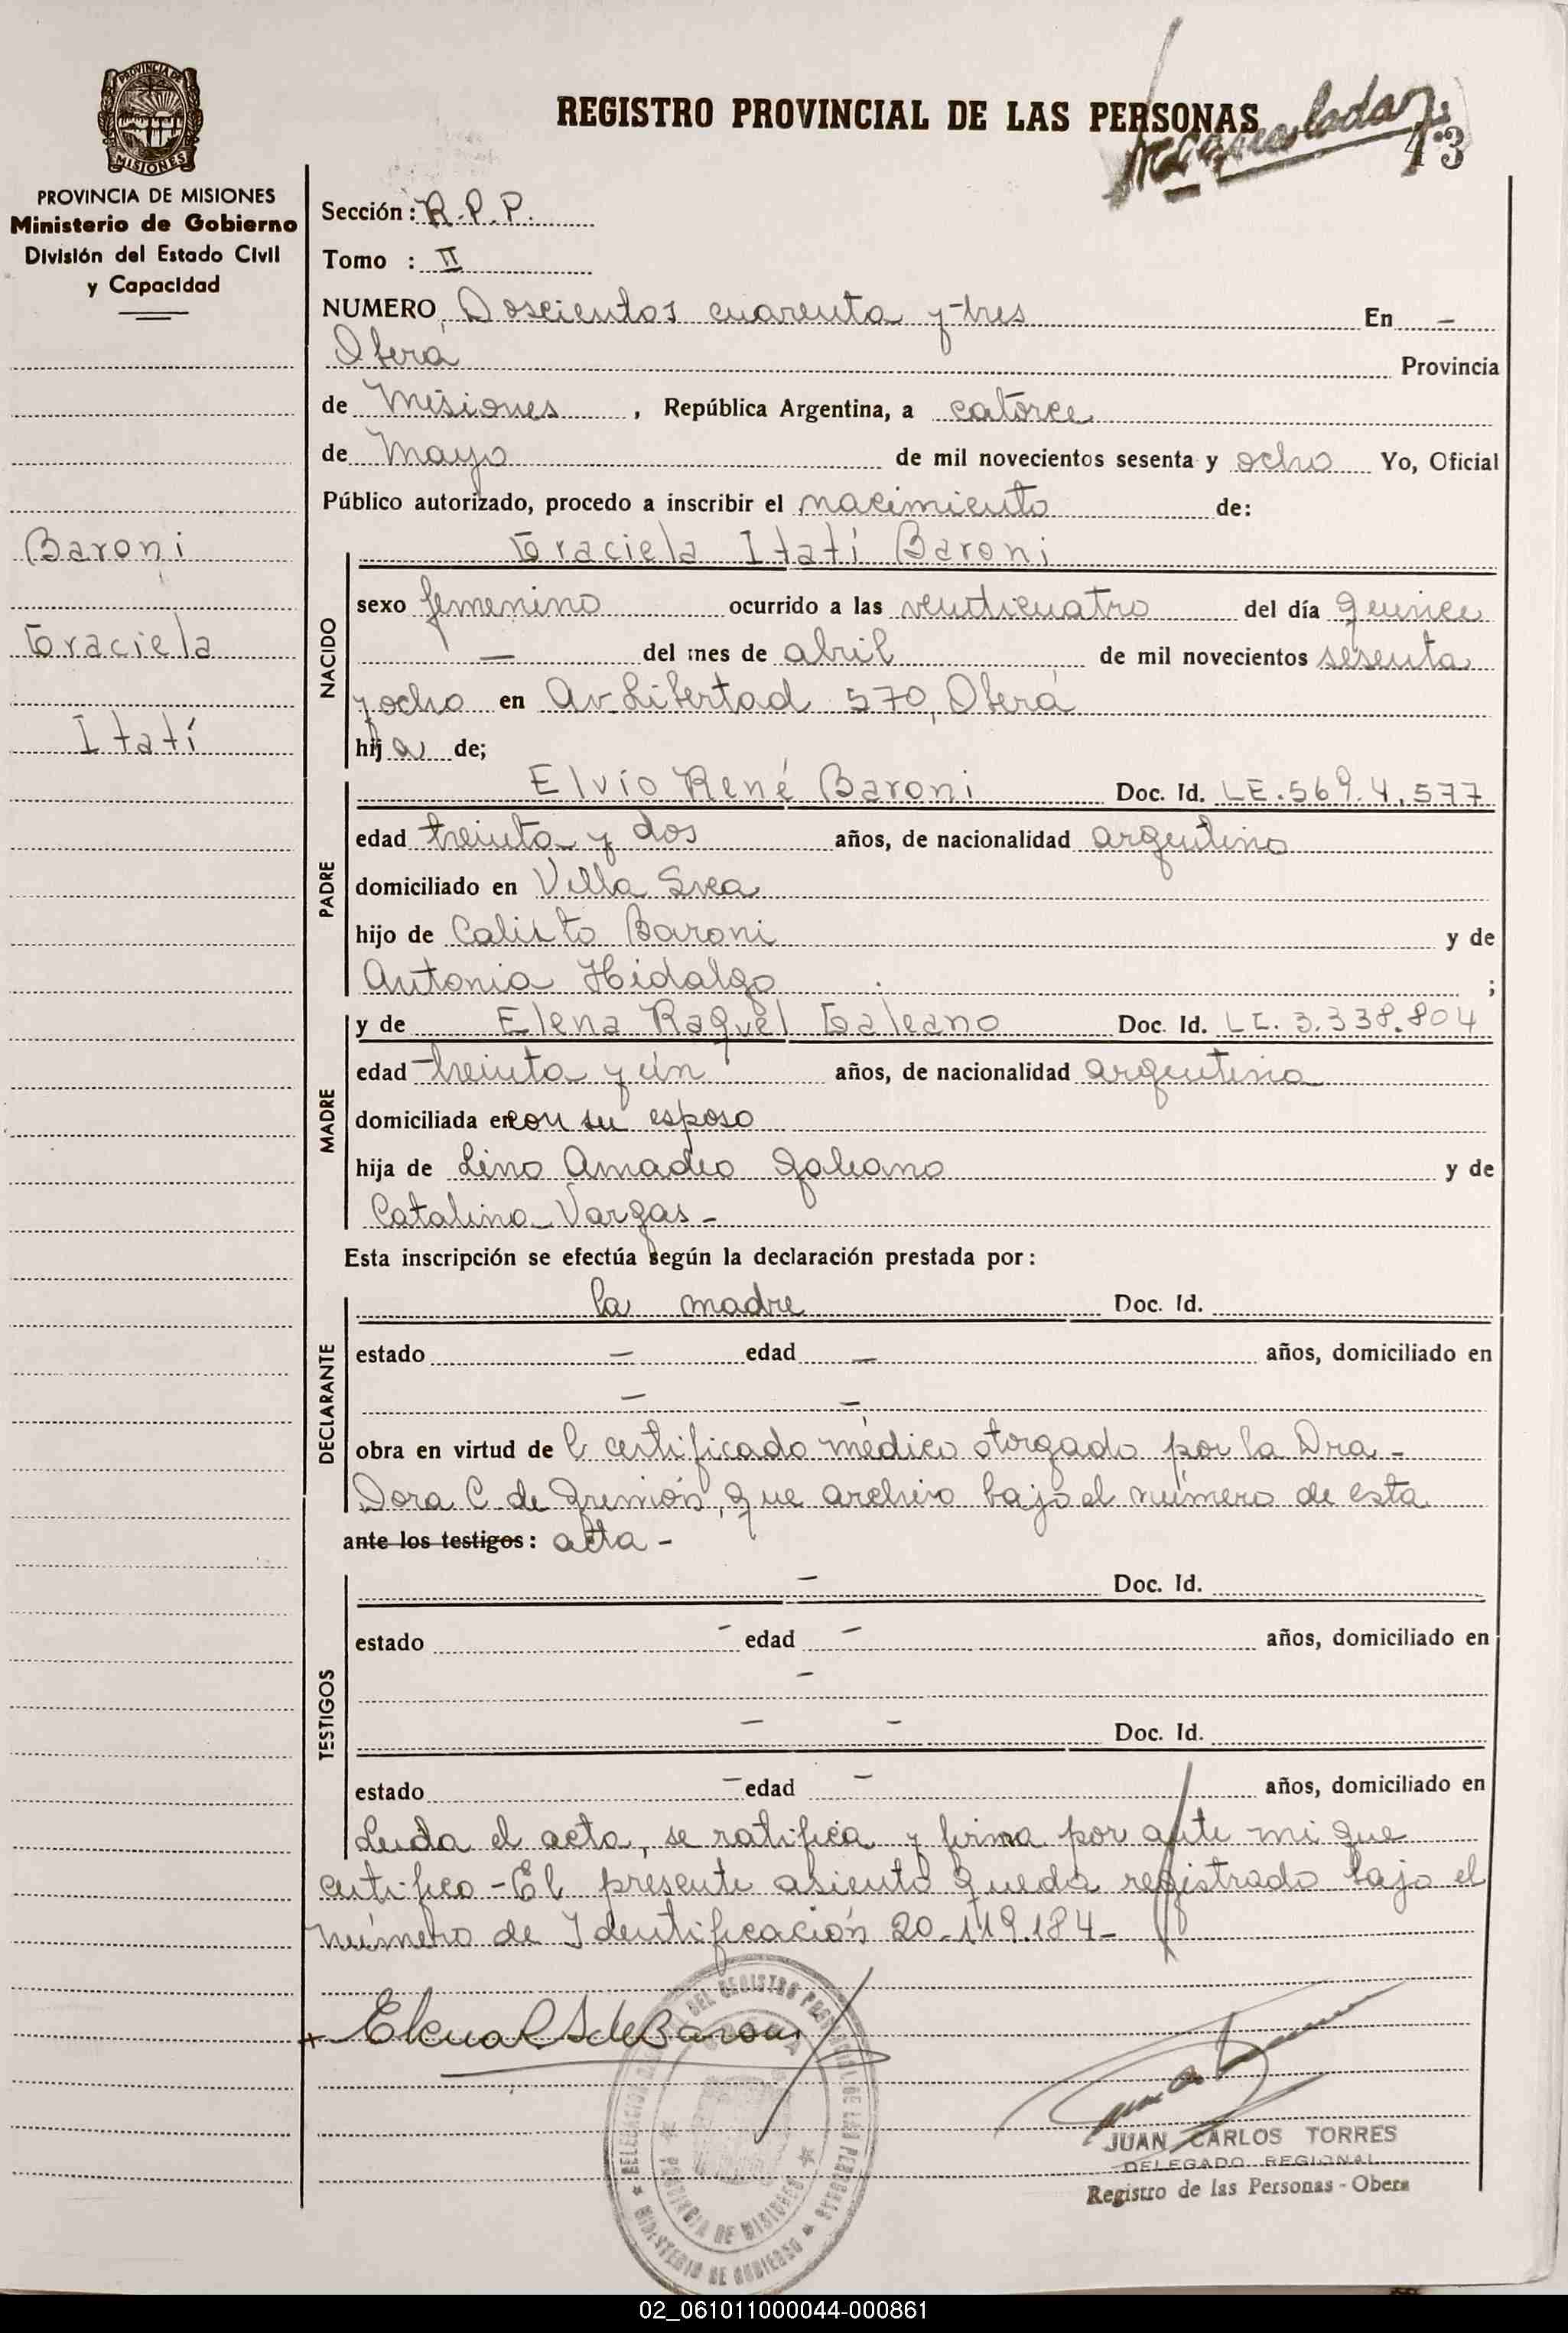 REGISTRO PROVINCIAL DE LAS PERSONAS
43
PROVINCIA DE
MISIONES
PROVINCIA DE MISIONES
Ministerio de Gobierno
División del Estado Civil
y Capacidad
Baroni
Graciela
Itatí
Sección: R.P.P.
Tomo : II
NUMERO Doscientos cuarenta y tres En —
Oberá Provincia
de Misiones , República Argentina, a catorce
de Mayo de mil novecientos sesenta y ocho Yo, Oficial
Público autorizado, procedo a inscribir el nacimiento de:
NACIDO
Graciela Itatí Baroni
sexo femenino ocurrido a las venticuatro del día quince
— del mes de abril de mil novecientos sesenta
y ocho en Av. Libertad 570, Oberá
hij a de;
PADRE
Elvio René Baroni Doc. Id. LE.569.4.577
edad treinta y dos años, de nacionalidad argentino
domiciliado en Villa Svea
hijo de Calisto Baroni y de
Antonia Hidalgo ;
MADRE
y de Elena Raquel Galeano Doc. Id. LC. 3.338.804
edad treinta y ún años, de nacionalidad argentina
domiciliada en con su esposo
hija de Lino Amadeo Galeano y de
Catalina Vargas -
Esta inscripción se efectúa según la declaración prestada por:
DECLARANTE
la madre Doc. Id.
estado — edad — años, domiciliado en
— —
obra en virtud de l certificado médico otorgado por la Dra -
Dora C de que archivo bajo el número de esta
ante los testigos: acta -
TESTIGOS
— Doc. Id.
estado — edad — años, domiciliado en
—
— — Doc. Id.
estado — edad — años, domiciliado en
Leida el acta, se ratifica y firma por ante mi que
certifico - El presente asiento queda registrado bajo el
número de Identificación 20.119.184 -
Elena R G de Baroni
JUAN CARLOS TORRES
DELEGADO REGIONAL
Registro de las Personas - Obera
DEL REGISTRO PROVINCIAL DE LAS PERSONAS
PROVINCIA DE MISIONES
MINISTERIO DE GOBIERNO
02_061011000044-000861